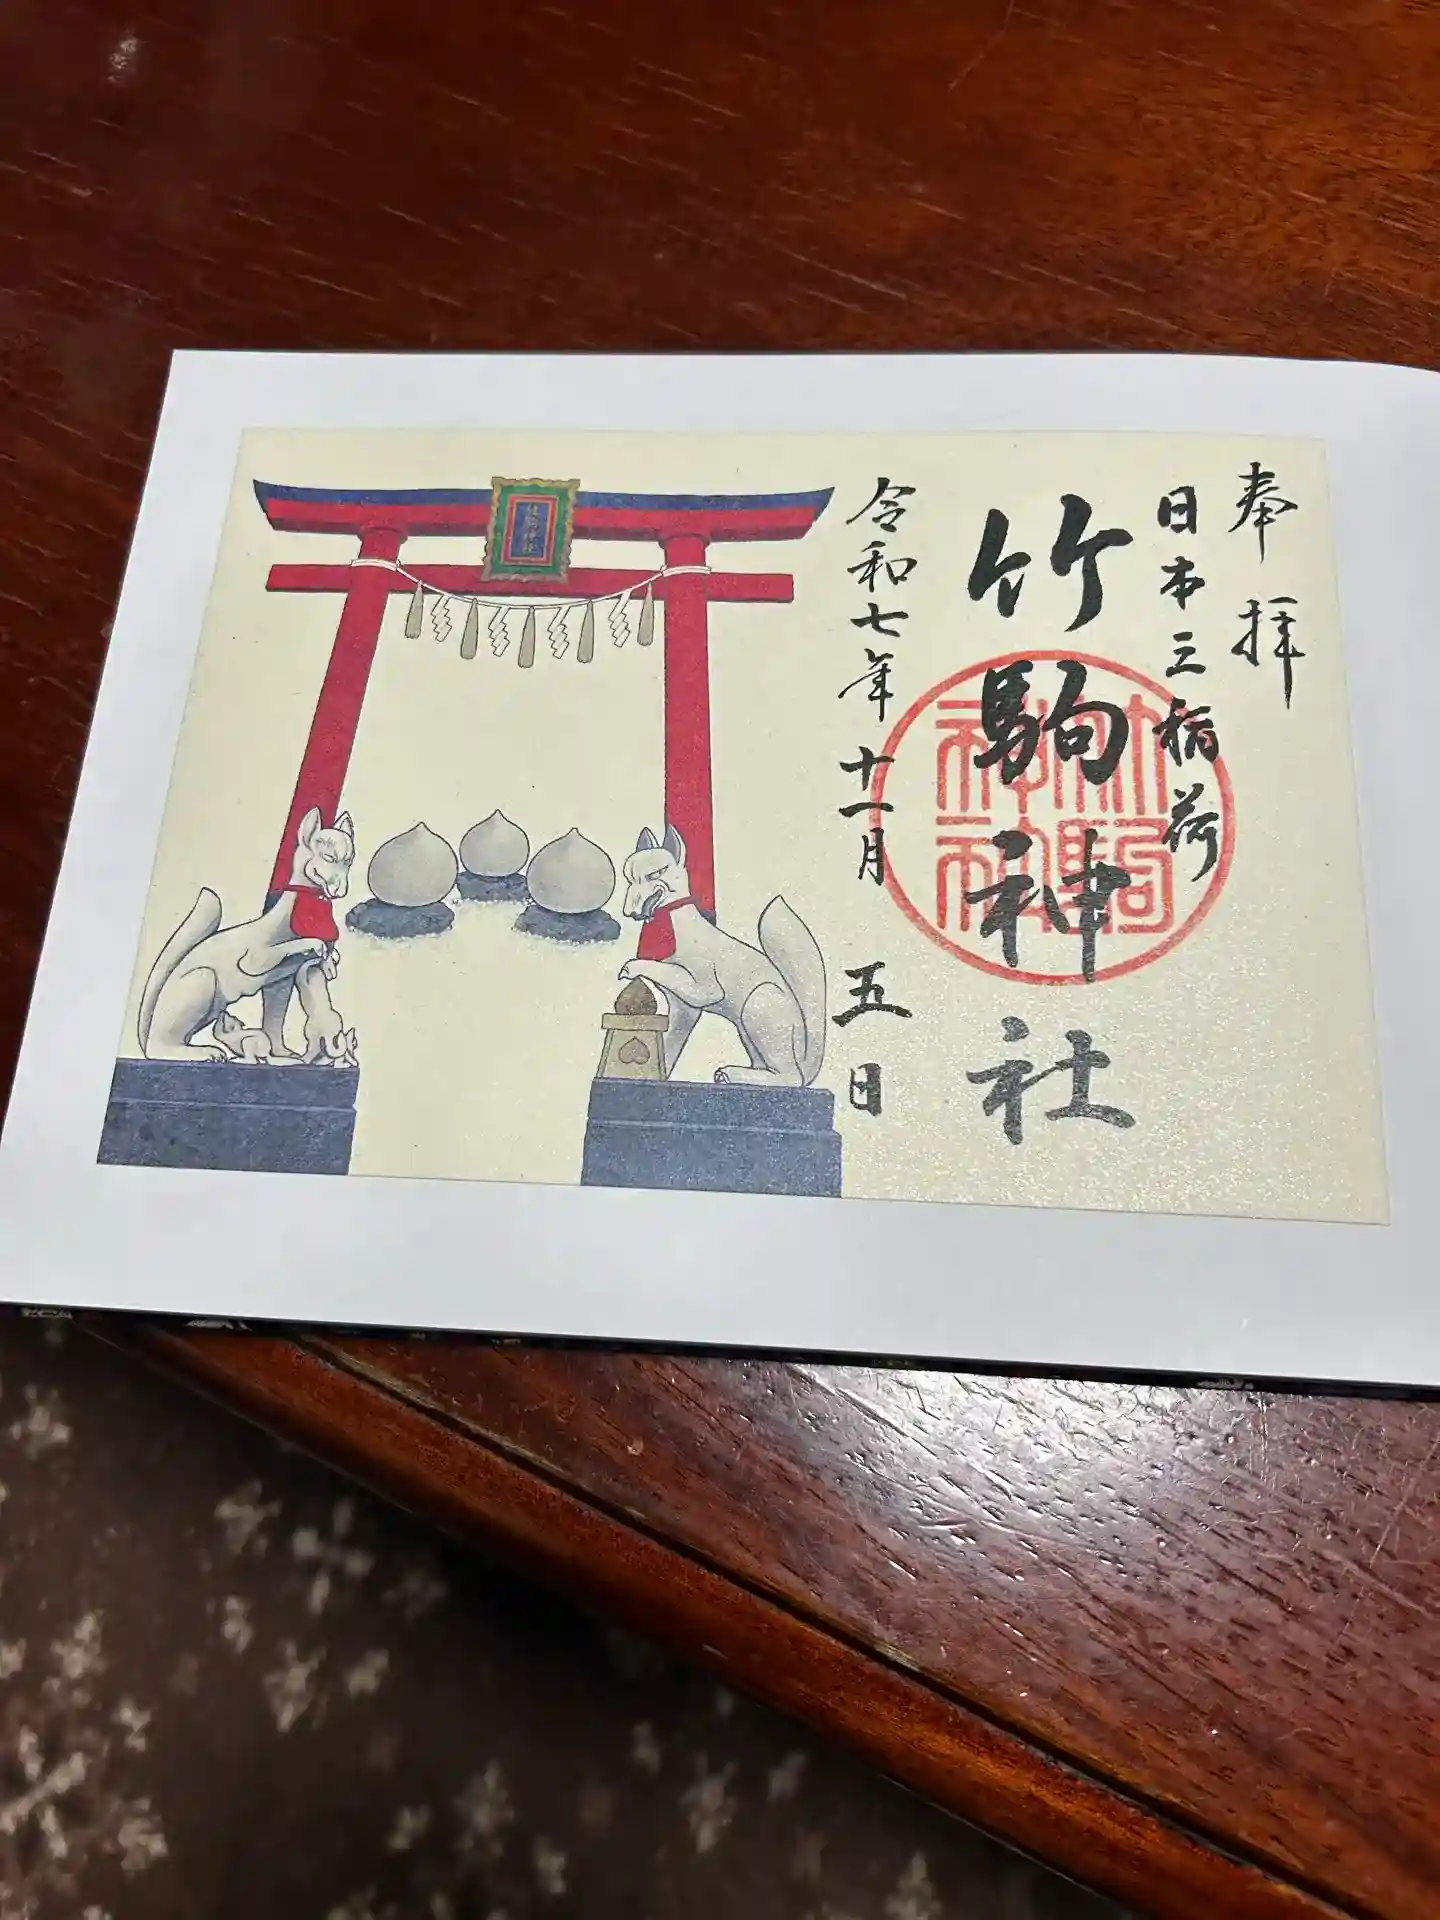 奉拝
日本三稲荷
竹駒神社
竹駒神社
令和七年十一月五日
竹駒神社